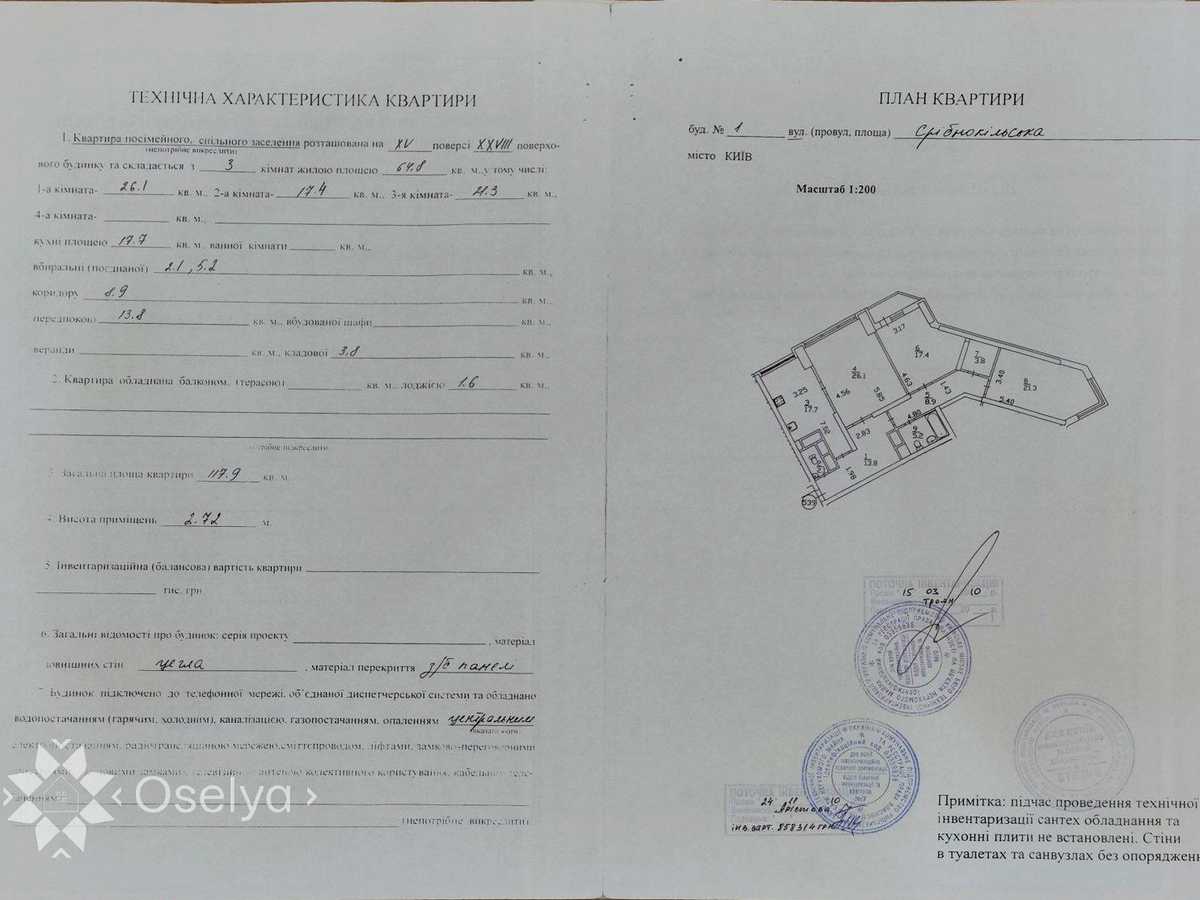 ТЕХНІЧНА ХАРАКТЕРИСТИКА КВАРТИРИ
1. Квартира посімейного, спільного заселення розташована на XV поверсі XXVIII поверхо-
(непотрібне викреслити)
вого будинку та складається з 3 кімнат жилою площею 64.8 кв. м., у тому числі:
1-а кімната- 26.1 кв. м., 2-а кімната- 17.4 кв. м., 3-я кімната- 21.3 кв. м.,
4-а кімната- кв. м.,
кухні площею 17.7 кв. м. ванної кімнати кв. м.,
вбиральні (поєднаної) 2.1, 5.2 кв. м.,
коридору 8.9 кв. м.,
передпокою 13.8 кв. м., вбудованої шафи кв. м.,
веранди кв. м., кладової 3.8 кв. м.,
2. Квартира обладнана балконом, (терасою) кв. м., лоджією 1.6 кв. м.,
потрібне підкреслити
3. Загальна площа квартири 117.9 кв. м.
4. Висота приміщень 2.72 м.
5. Інвентаризаційна (балансова) вартість квартири
тис. грн
6. Загальні відомості про будинок: серія проекту , матеріал
зовнішних стін цегла , матеріал перекриття з/б панел
7. Будинок підключено до телефонної мережі, об'єднаної диспетчерської системи та обладнано
водопостачанням (гарячим, холодним), каналізацією, газопостачанням, опаленням центральним
електропостачанням, радіотрансляційною мережею, сміттєпроводом, ліфтами, замково-переговорними
антеною колективного користування, кабельного теле-
(непотрібне викреслити)
Oselya
ПЛАН КВАРТИРИ
буд. № 1 вул. (провул, площа) Срібнокільська
місто КИЇВ
Масштаб 1:200
3.17
6
17.4
7
3.8
4
26.1
4.63
3.40
8
21.3
3.25
4.56
5.85
1.43
5
8.9
5.40
3
17.7
4.80
7.92
2.83
2
5.2
1
13.8
1.98
539
ПОТОЧНА ІНВЕНТАРИЗАЦІЯ
15 03 10
Троян
ПОТОЧНА ІНВЕНТАРИЗАЦІЯ
24 11 10
інв. варт. 858314 грн
Примітка: підчас проведення технічної
інвентаризації сантех обладнання та
кухонні плити не встановлені. Стіни
в туалетах та санвузлах без опорядження